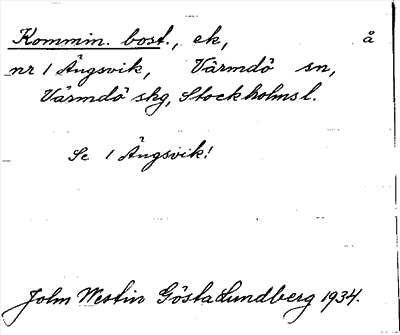 Kommin. bost., ek, å
nr 1 Ängsvik, Värmdö sn,
Värmdö skg, Stockholms l.
Se 1 Ängsvik!
John Westin Gösta Lundberg 1934.